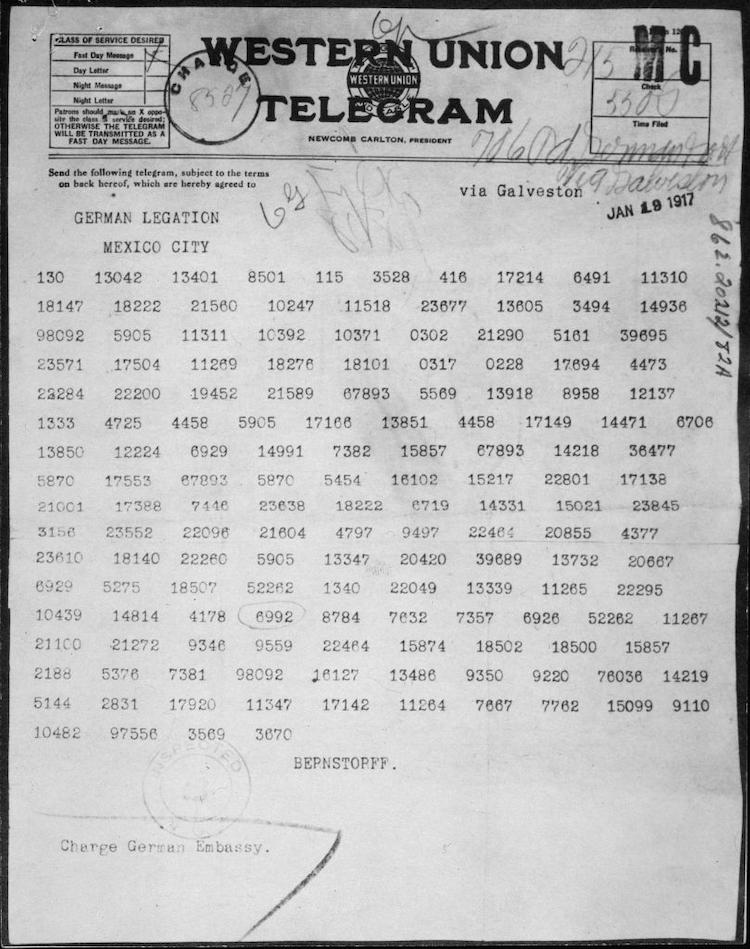 CLASS OF SERVICE DESIRED
Fast Day Message
Day Letter
Night Message
Night Letter
Patrons should mark an X oppo-
site the class of service desired;
OTHERWISE THE TELEGRAM
WILL BE TRANSMITTED AS A
FAST DAY MESSAGE.
CHARGE
WESTERN UNION
WESTERN UNION
TELEGRAM
NEWCOMB CARLTON, PRESIDENT
Receiver's No.
Check
Time Filed
Send the following telegram, subject to the terms
on back hereof, which are hereby agreed to
via Galveston
via Galveston
JAN 19 1917
GERMAN LEGATION
MEXICO CITY
130 13042 13401 8501 115 3528 416 17214 6491 11310
18147 18222 21560 10247 11518 23677 13605 3494 14936
98092 5905 11311 10392 10371 0302 21290 5161 39695
23571 17504 11269 18276 18101 0317 0228 17694 4473
22284 22200 19452 21589 67893 5569 13918 8958 12137
1333 4725 4458 5905 17166 13851 4458 17149 14471 6706
13850 12224 6929 14991 7382 15857 67893 14218 36477
5870 17553 67893 5870 5454 16102 15217 22801 17138
21001 17388 7446 23638 18222 6719 14331 15021 23845
3156 23552 22096 21604 4797 9497 22464 20855 4377
23610 18140 22260 5905 13347 20420 39689 13732 20667
6929 5275 18507 52262 1340 22049 13339 11265 22295
10439 14814 4178 6992 8784 7632 7357 6926 52262 11267
21100 21272 9346 9559 22464 15874 18502 18500 15857
2188 5376 7381 98092 16127 13486 9350 9220 76036 14219
5144 2831 17920 11347 17142 11264 7667 7762 15099 9110
10482 97556 3569 3670
BERNSTORFF.
INSPECTED
Charge German Embassy.
862.20212/82A